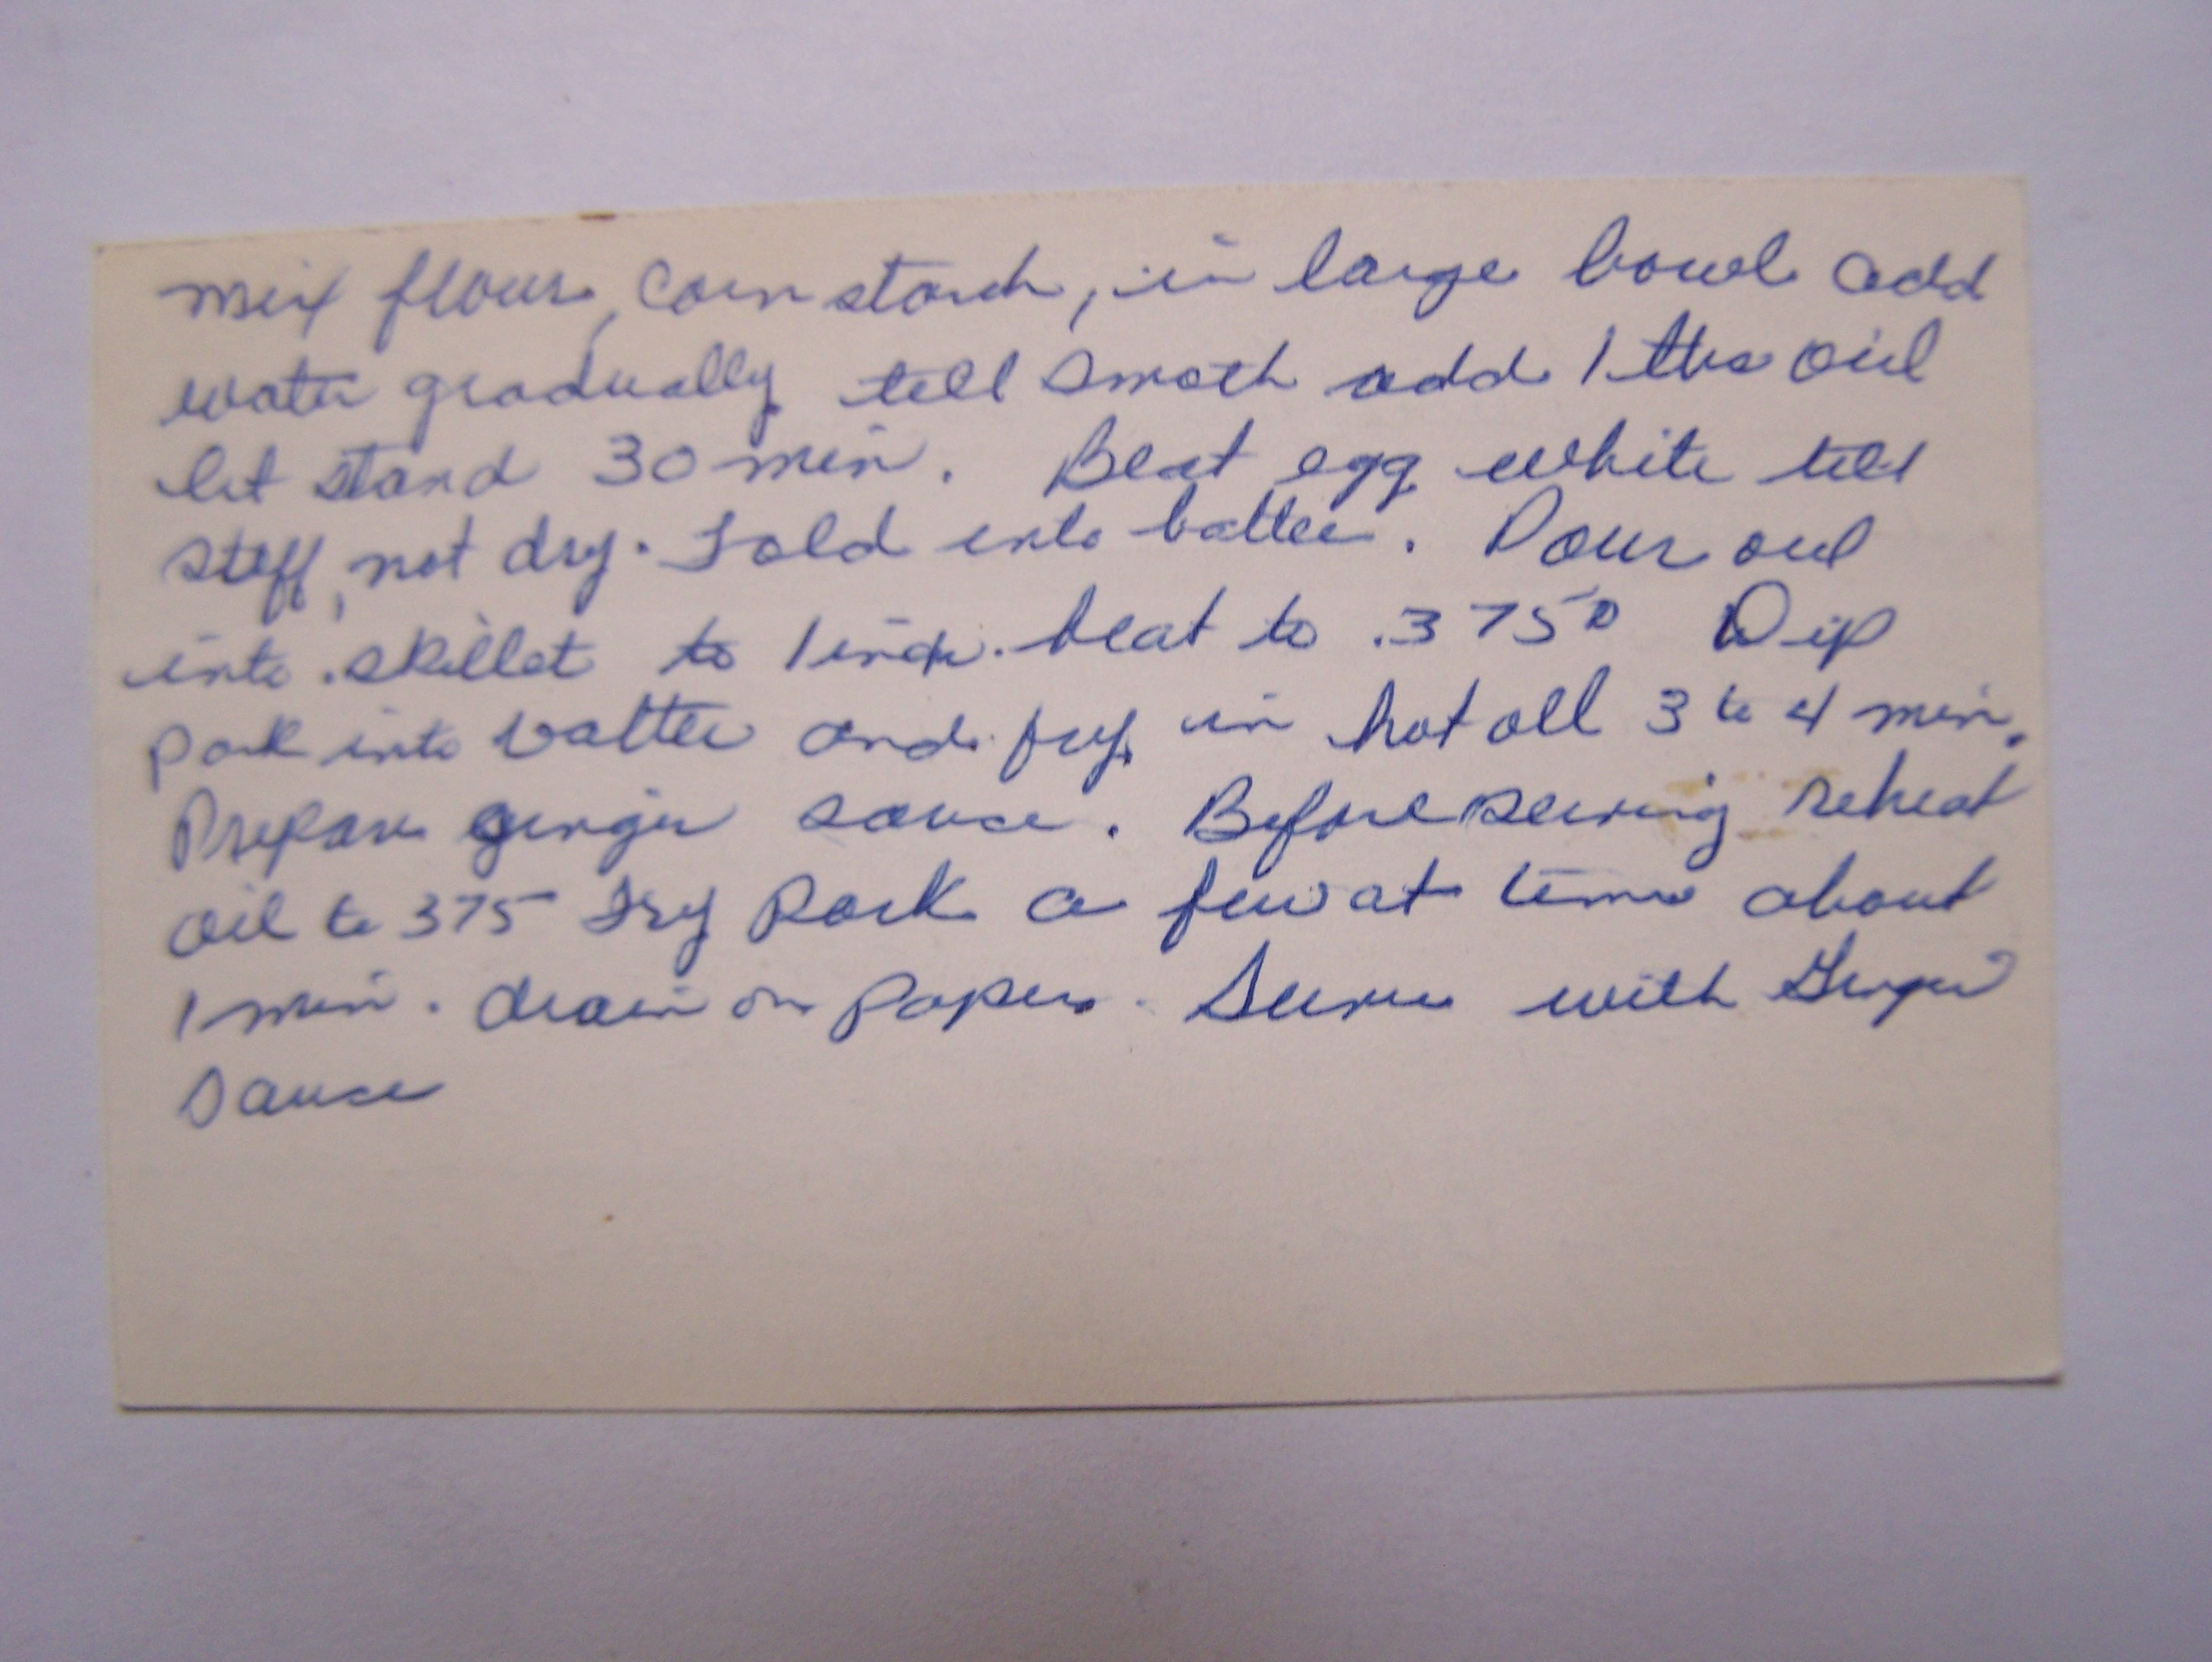 mix flour, corn starch, in large bowl add
water gradually till smoth add 1 tbs oil
let stand 30 min. Beat egg white till
stiff, not dry. Fold into batter. Pour oil
into skillet to 1 inch. heat to 375° Dip
pork into batter and fry in hot oll 3 to 4 min.
Prepare ginger sauce. Before serving reheat
oil to 375 Fry Pork a few at time about
1 min. drain on paper. Serve with Ginger
Sauce